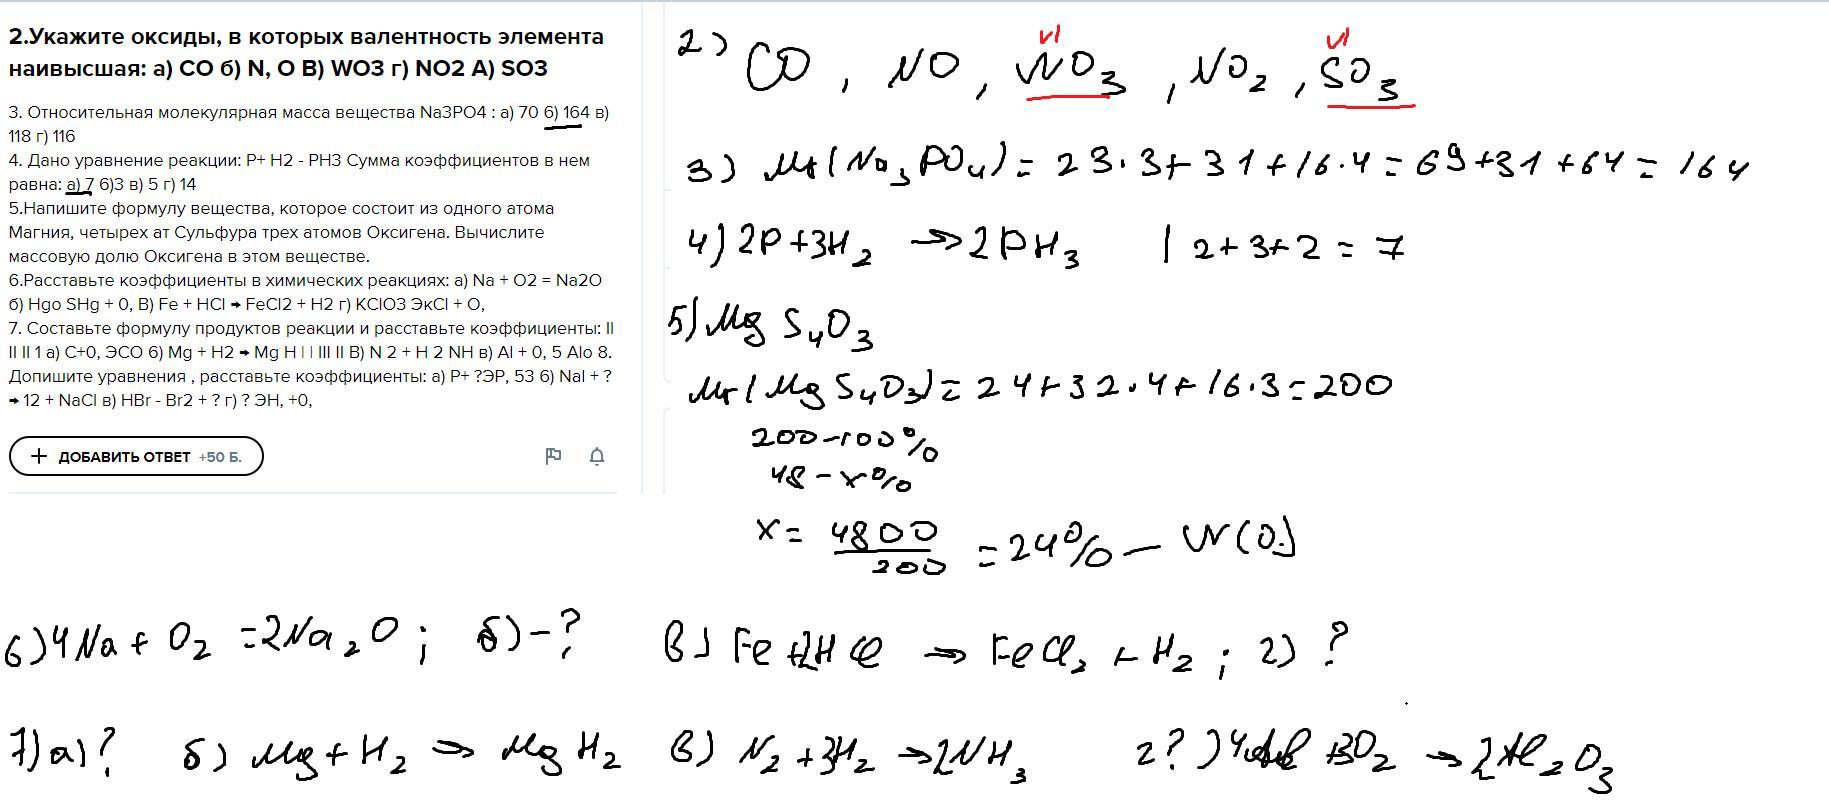 2.Укажите оксиды, в которых валентность элемента
наивысшая: а) CO б) N, O В) WO3 г) NO2 А) SO3
3. Относительная молекулярная масса вещества Na3PO4 : а) 70 б) 164 в)
118 г) 116
4. Дано уравнение реакции: P+ H2 - PH3 Сумма коэффициентов в нем
равна: а) 7 6)3 в) 5 г) 14
5.Напишите формулу вещества, которое состоит из одного атома
Магния, четырех ат Сульфура трех атомов Оксигена. Вычислите
массовую долю Оксигена в этом веществе.
6.Расставьте коэффициенты в химических реакциях: а) Na + O2 = Na2O
б) Hgo SHg + 0, В) Fe + HCl → FeCl2 + H2 г) KClO3 ЭкCl + O,
7. Составьте формулу продуктов реакции и расставьте коэффициенты: II
II II 1 а) C+0, ЭСО 6) Mg + H2 → Mg H | | III II В) N 2 + H 2 NH в) Al + 0, 5 Alo 8.
Допишите уравнения , расставьте коэффициенты: а) P+ ?ЭР, 53 6) NaI + ?
→ 12 + NaCl в) HBr - Br2 + ? г) ? ЭН, +0,
+ ДОБАВИТЬ ОТВЕТ +50 Б.
VI VI
2) CO , NO , WO3 , NO2 , SO3
3) Mr(Na3PO4) = 23·3+31+16·4 = 69+31+64 = 164
4) 2P+3H2 → 2PH3 | 2+3+2 = 7
5) Mg S4O3
Mr(MgS4O3) = 24+32·4+16·3=200
200-100%
48 - x%
x = 4800/200 = 24% - W(O)
6) 4Na + O2 = 2Na2O ; б) - ? в) Fe+2HCl → FeCl2 + H2 ; г) ?
7) а) ? б) Mg + H2 → MgH2 в) N2 + 3H2 → 2NH3 г?) 4Al + 3O2 → 2Al2O3